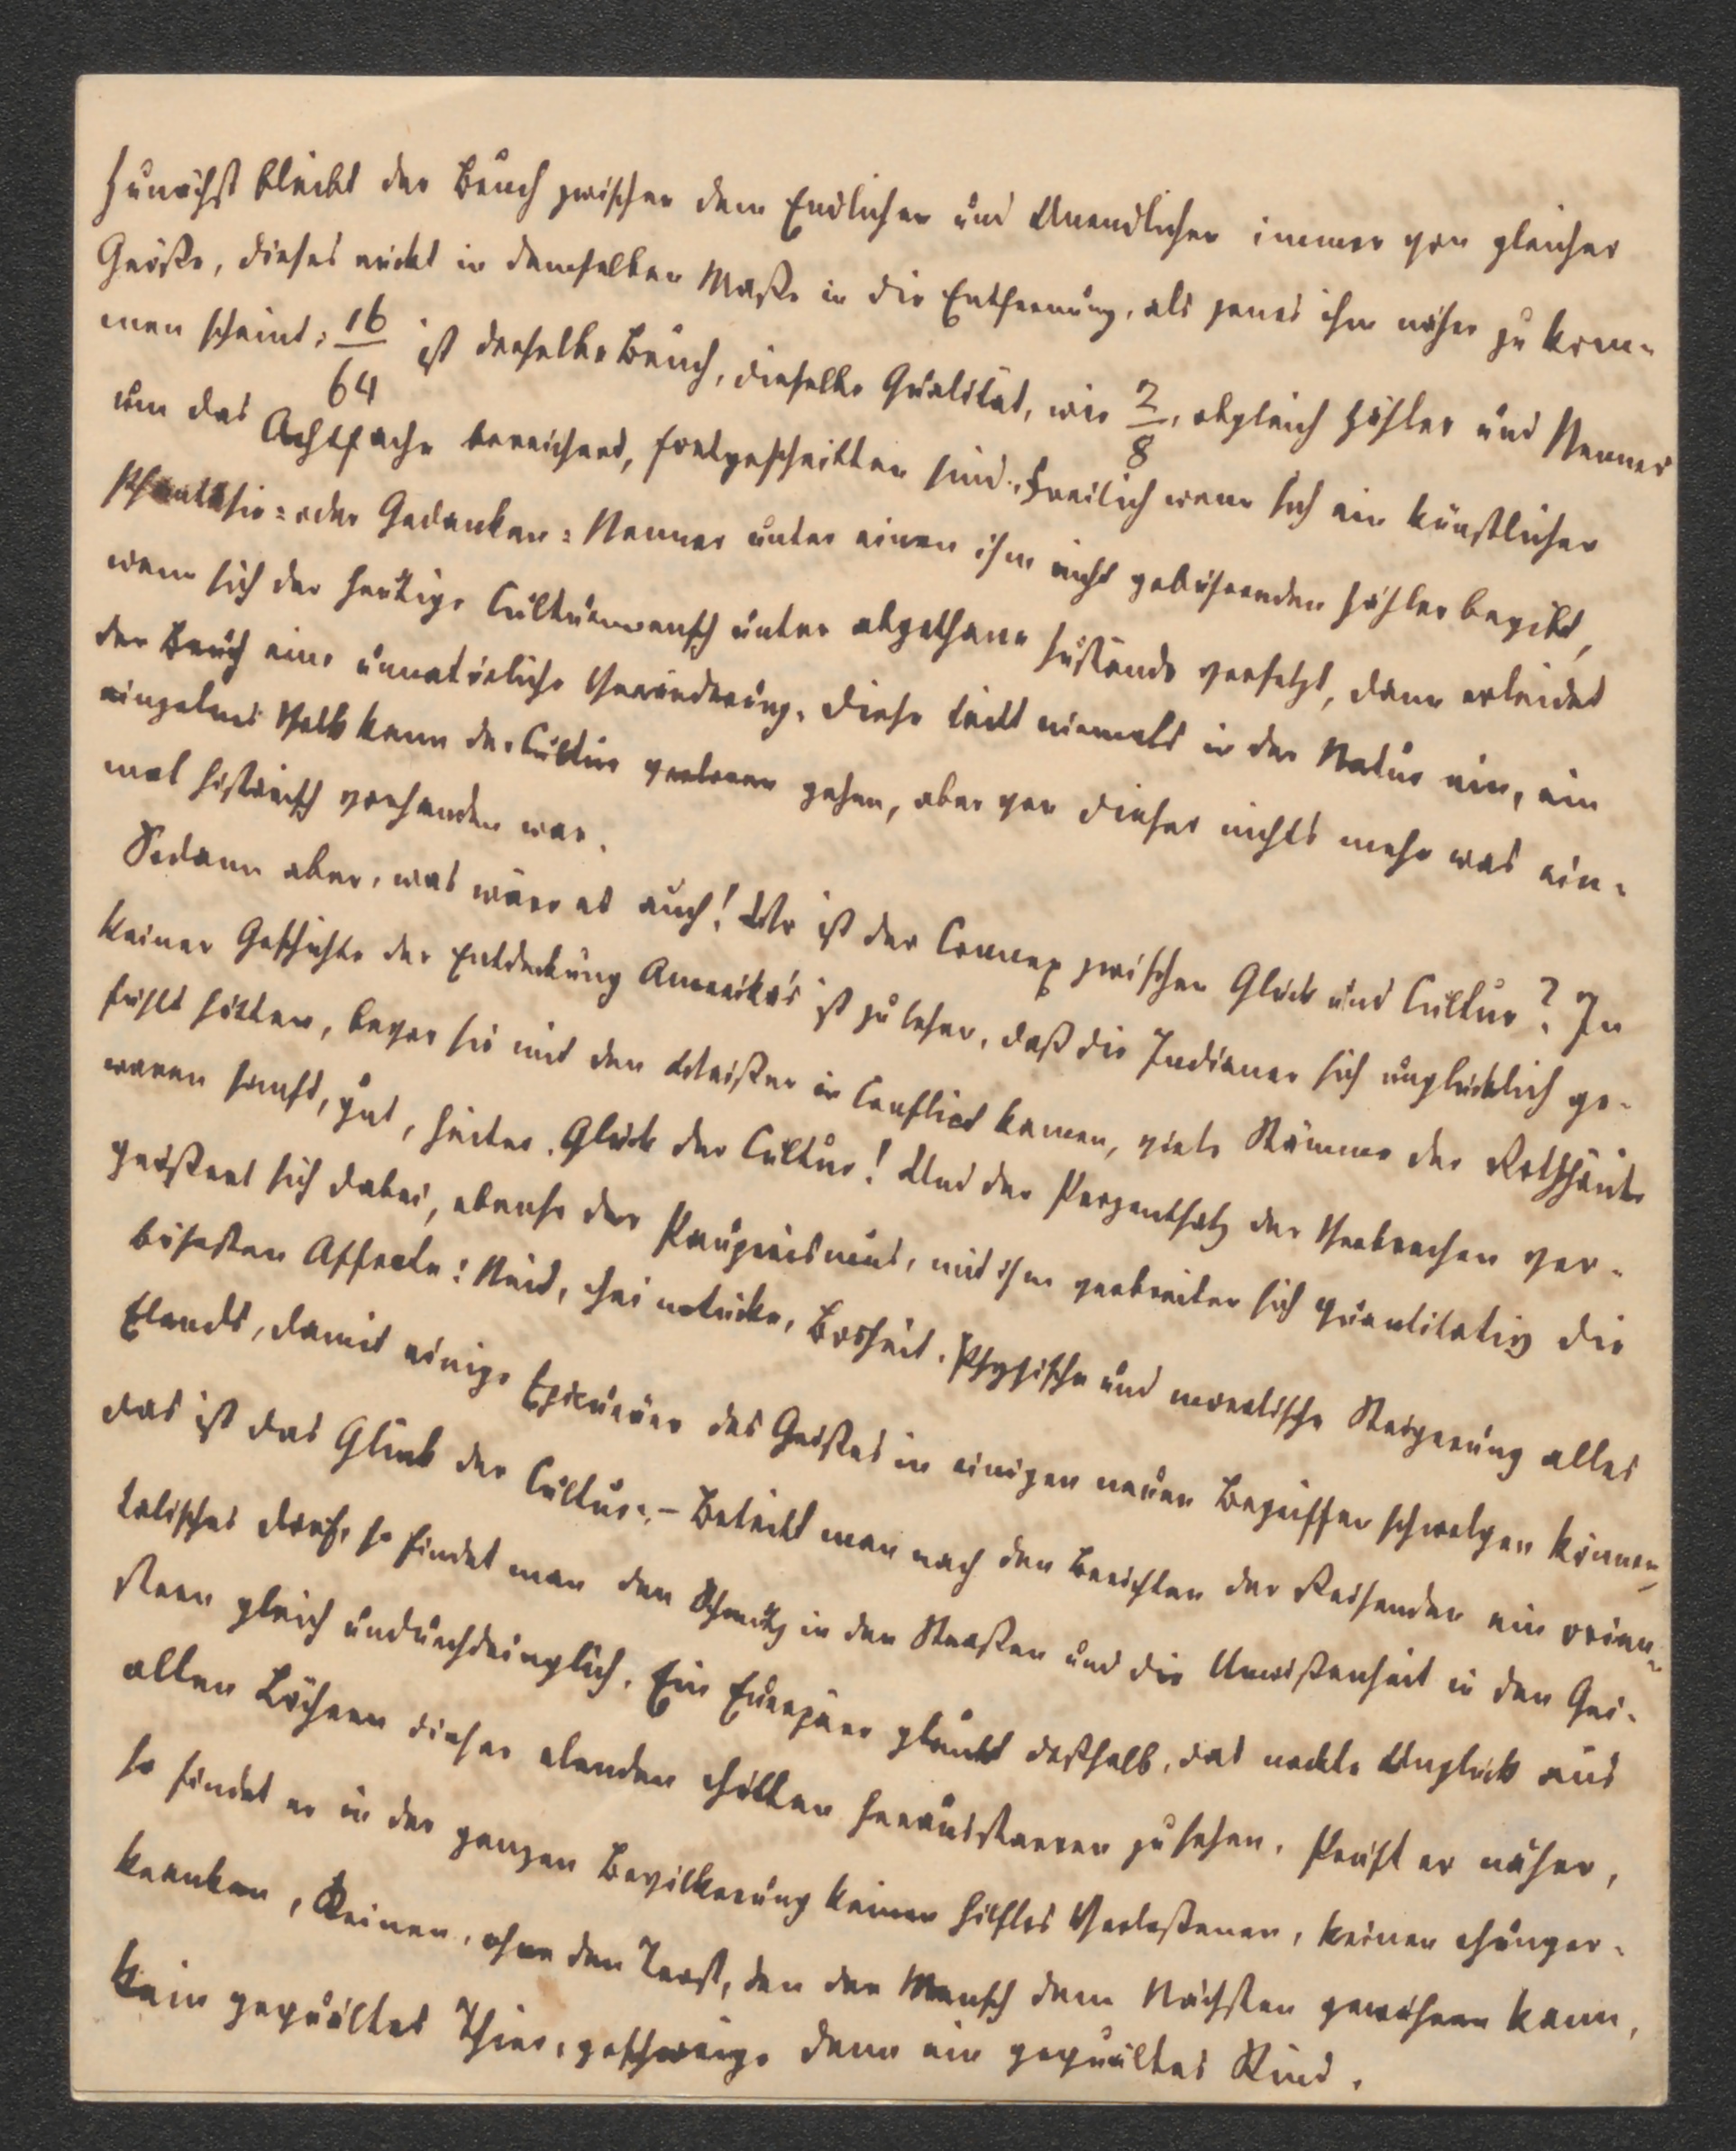 Zunächst bleibt der Bruch zwischen dem Endlichen und Unendlichen immer von gleicher
Größe, dieses rückt in demselben Maße in die Entfernung, als jenes ihm näher zu kom-
men scheint; 16/64 ist derselbe Bruch, dieselbe Qualität, wie 2/8, obgleich Zähler und Nenner
um das Achtfache bereichert, fortgeschritten sind. Freilich wenn sich ein künstlicher
Phantasie- oder Gedanken-Nenner unter einen ihm nicht gebührenden Zähler begibt,
wenn sich der heutige Culturmensch unter abgethane Zustände versetzt, dann erleidet
der Bruch eine unnatürliche Veränderung. Diese tritt niemals in der Natur ein, ein
einzelnes Volk kann der Cultur verloren gehen, aber von dieser nichts mehr was ein-
mal historisch vorhanden war.
Sodann aber, was wäre es auch! Wo ist der Connex zwischen Glück und Cultur? In
keiner Geschichte der Entdeckung Amerika's ist zu lesen, daß die Indianer sich unglücklich ge-
fühlt hätten, bevor sie mit den Weißen in Conflict kamen, viele Stämme der Rothhäute
waren sanft, gut, heiter. Glück der Cultur! Und der Perzentsatz der Verbrechen ver-
größert sich dabei, ebenso der Pauperismus, mit ihm verbreiten sich quantitativ die
bösesten Affecte: Neid, Heimtücke, Bosheit. Physische und moralische Steigerung alles
Elends, damit einige Epicuräer des Geistes in einigen neuen Begriffen schwelgen können,
das ist das Glück der Cultur. – Betritt man nach den Berichten der Reisenden ein orien-
talisches Dorf, so findet man den Schmutz in den Straßen und die Unwißenheit in den Gei-
stern gleich undurchdringlich. Ein Europäer glaubt deßhalb, das nackte Unglück aus
allen Löchern dieser elenden Hütten herausstarren zu sehen. Prüft er näher,
so findet er in der ganzen Bevölkerung keinen hilflos Verlaßenen, keinen Hunger-
kranken, Keinen, ohne den Trost, den der Mensch dem Nächsten gewähren kann,
kein gequältes Thier, geschweige denn ein gequältes Kind.